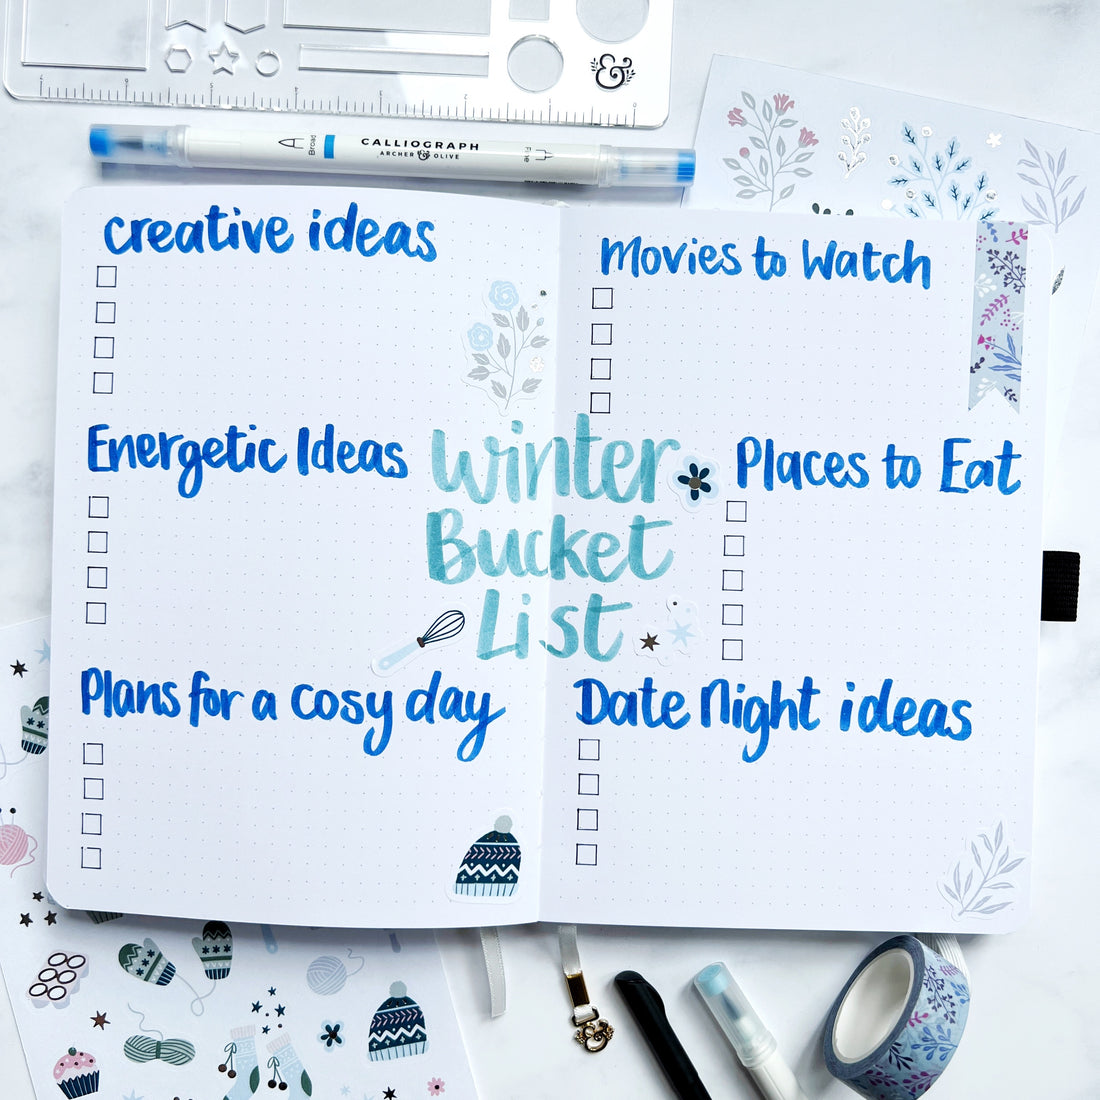 &
CALLIOGRAPH
ARCHER & OLIVE
Broad
Fine
creative ideas
Energetic Ideas
Plans for a cosy day
Winter
Bucket
List
Movies to Watch
Places to Eat
Date Night ideas
&